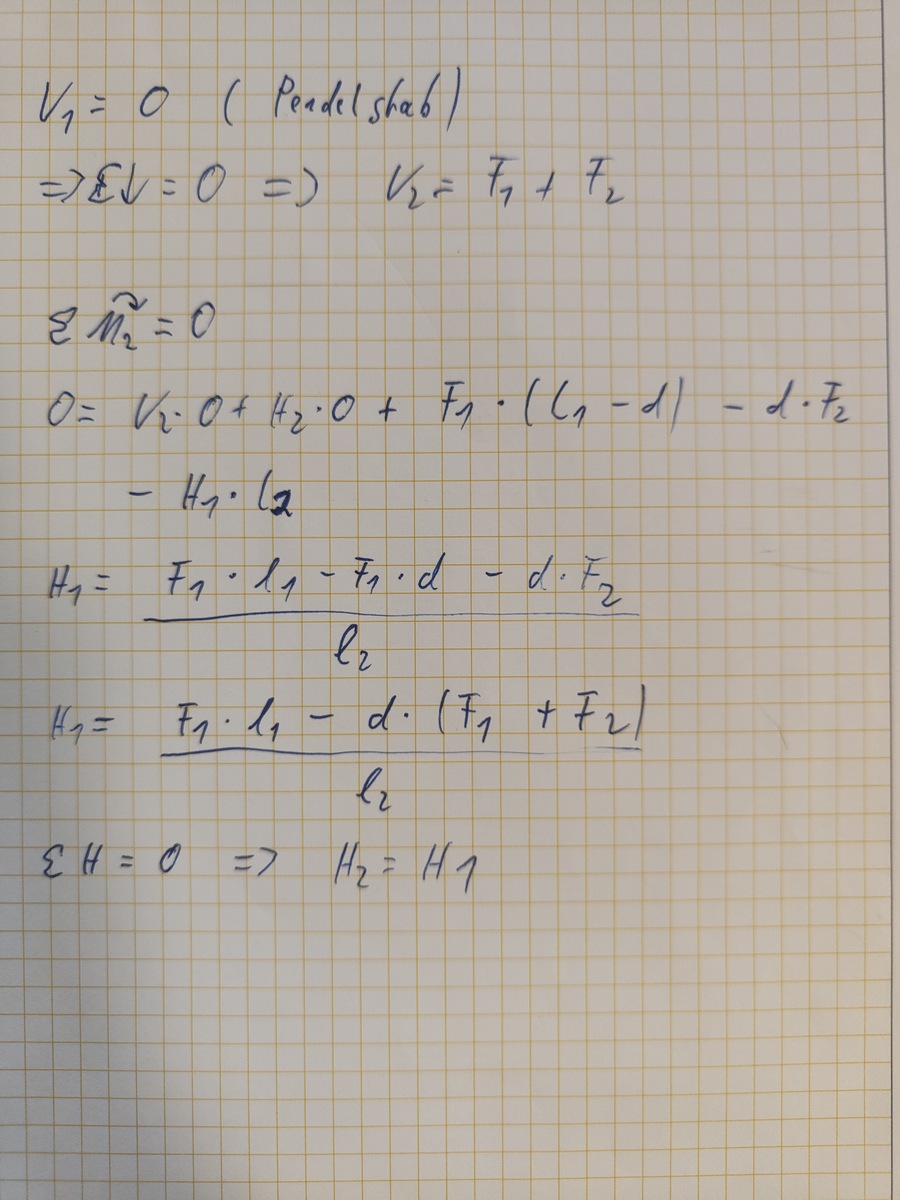 V₁ = 0 ( Pendelstab)
=> Σ↓ = 0 => V₂ = F₁ + F₂
Σ M₂↷ = 0
0 = V₂·0 + H₂·0 + F₁·(l₁ - d) - d·F₂
- H₁·l₂
H₁ = F₁·l₁ - F₁·d - d·F₂
l₂
H₁ = F₁·l₁ - d·(F₁ + F₂)
l₂
Σ H = 0 => H₂ = H1